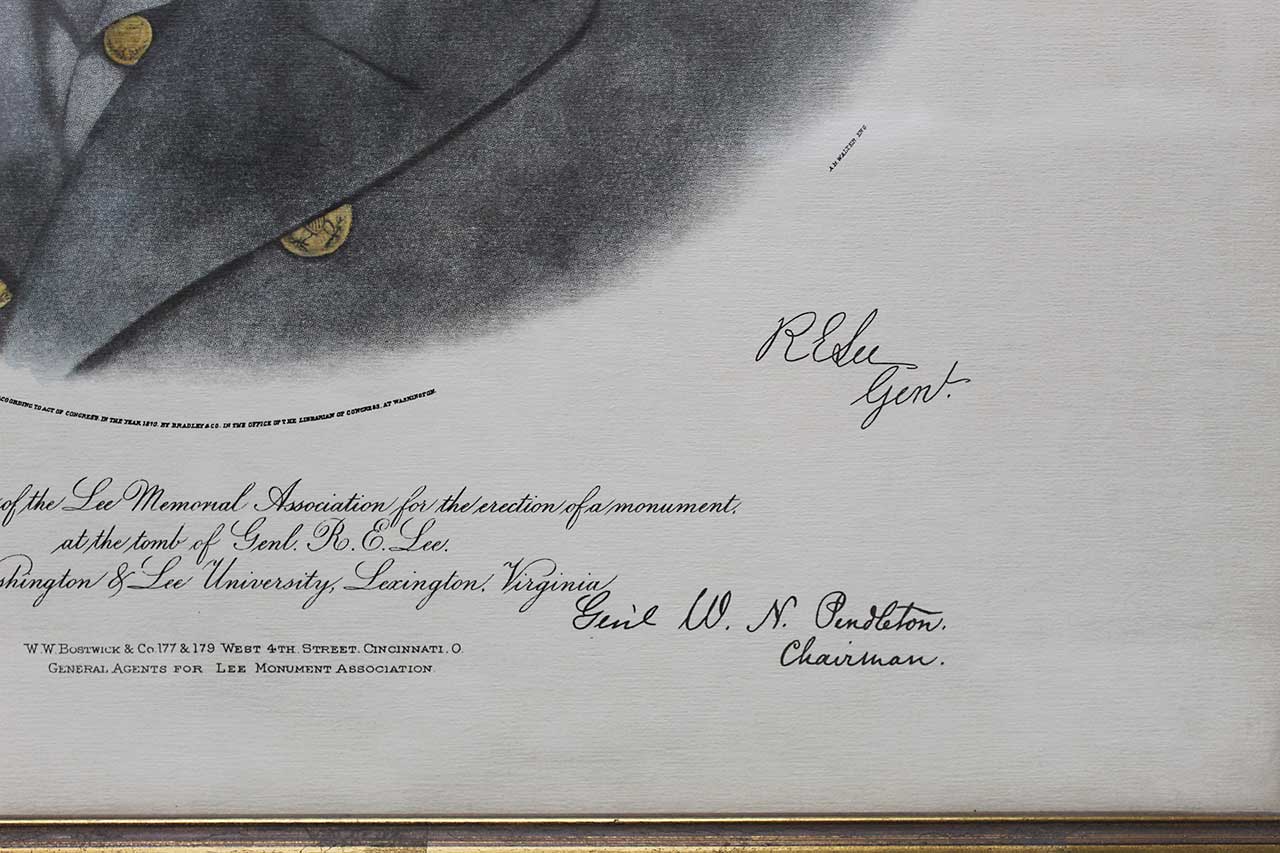 A.B. WALTER ENG
R E Lee
Genl.
ACCORDING TO ACT OF CONGRESS. IN THE YEAR 1870. BY BRADLEY & CO. IN THE OFFICE OF THE LIBRARIAN OF CONGRESS. AT WASHINGTON.
of the Lee Memorial Association for the erection of a monument,
at the tomb of Genl. R. E. Lee.
shington & Lee University, Lexington. Virginia
Gen'l W. N. Pendleton.
Chairman.
W. W. BOSTWICK & CO. 177 & 179 WEST 4TH. STREET. CINCINNATI. O.
GENERAL AGENTS FOR LEE MONUMENT ASSOCIATION.